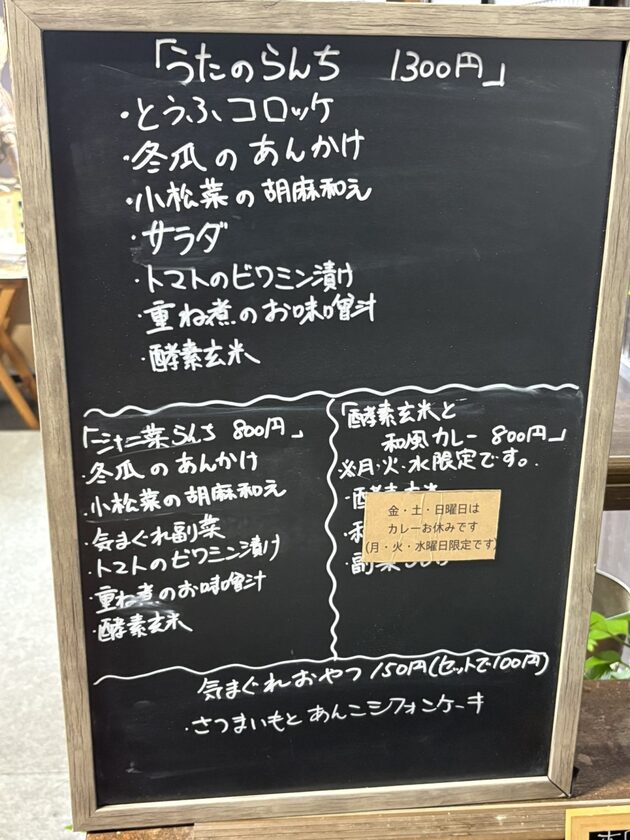 「うたのらんち 1300円」
・とうふコロッケ
・冬瓜のあんかけ
・小松菜の胡麻和え
・サラダ
・トマトのビワミン漬け
・重ね煮のお味噌汁
・酵素玄米
「一汁二菜らんち 800円」
・冬瓜のあんかけ
・小松菜の胡麻和え
・気まぐれ副菜
・トマトのビワミン漬け
・重ね煮のお味噌汁
・酵素玄米
「酵素玄米と
和風カレー 800円」
※月・火・水限定です。
金・土・日曜日は
カレーお休みです
(月・火・水曜日限定です)
気まぐれおやつ 150円(セットで100円)
・さつまいもとあんこシフォンケーキ